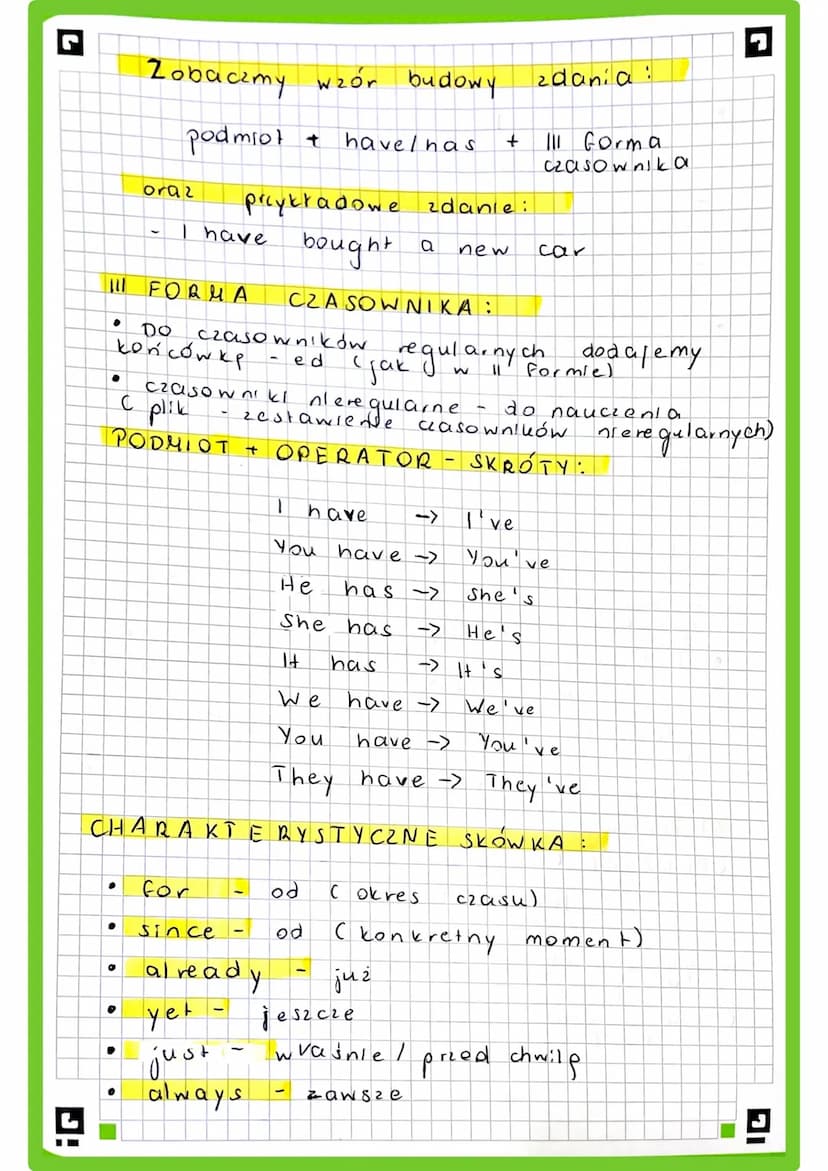 Zobaczmy wzór budowy zdania:
podmiot + have/has + III forma
czasownika
oraz przykładowe zdanie:
- I have bought a new car
III FORMA CZASOWNIKA:
• DO czasowników regularnych dodajemy
końcówkę - ed (jak w II formie)
• czasowniki nieregularne - do nauczenia
( plik - zestawienie czasowników nieregularnych)
PODMIOT + OPERATOR - SKRÓTY:
I have -> I've
You have -> You've
He has -> she's
She has -> He's
It has -> It's
We have -> We've
You have -> You've
They have -> They've
CHARAKTERYSTYCZNE SŁÓWKA:
• for - od ( okres czasu)
• since - od ( konkretny moment)
• already - już
• yet - jeszcze
• just - właśnie / przed chwilą
• always - zawsze